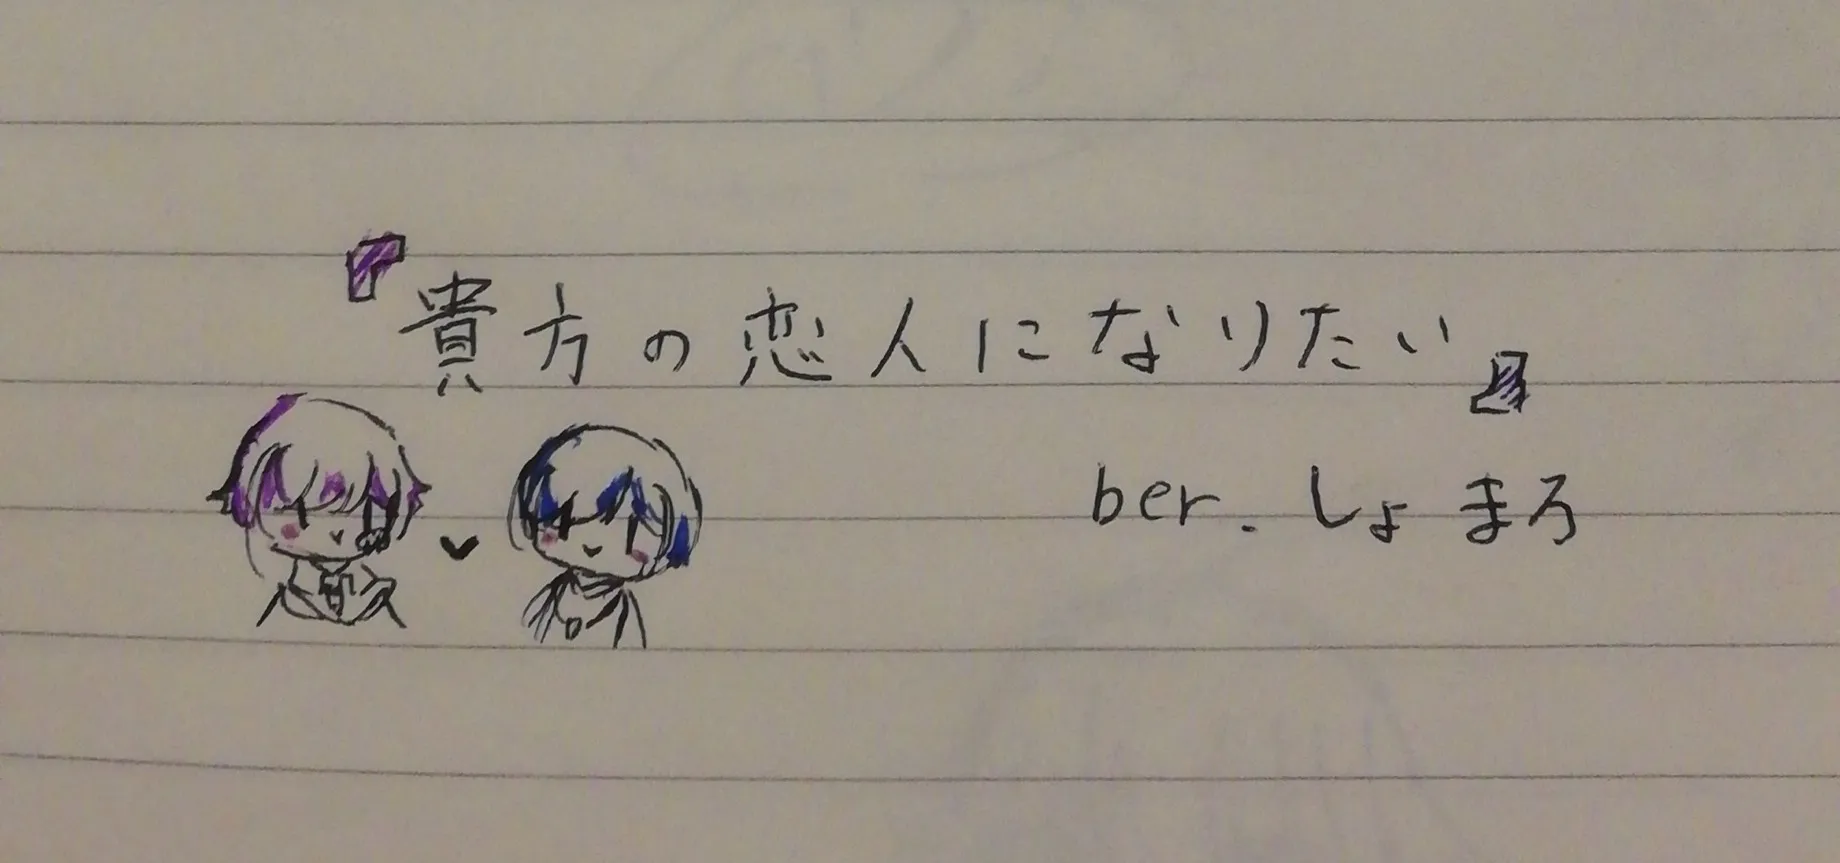 『貴方の恋人になりたい』
ber.しょまろ